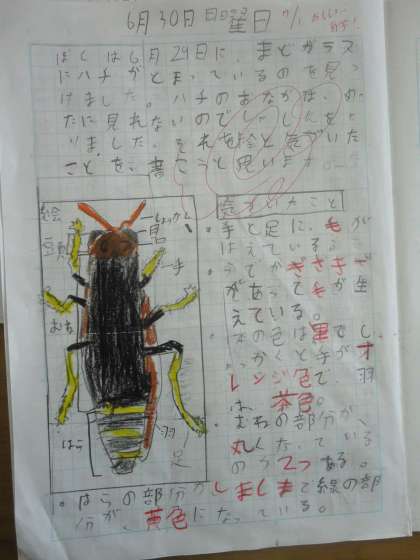 6月30日 日曜日
ぼくは6月29日に、まどガラス
にハチがとまっているのを見つ
けました。ハチのおなかは、め
たに見れないのでしゃしんをと
りました。それを絵と気づいた
ことを、書こうと思います。
気づいたこと
・手と足に、毛が
はえている。
・うでがぎざぎざ
があって毛が生
えている。
色は黒で、し
ょっかくと手がオ
レンジ色で、羽
は、茶色。
・むねの部分が、
丸くなっている
のが2つある。
・はらの部分がしましまで線の部
分が、黄色になっている。
絵
頭
しょっかく
目
手
むね
はら
羽
足